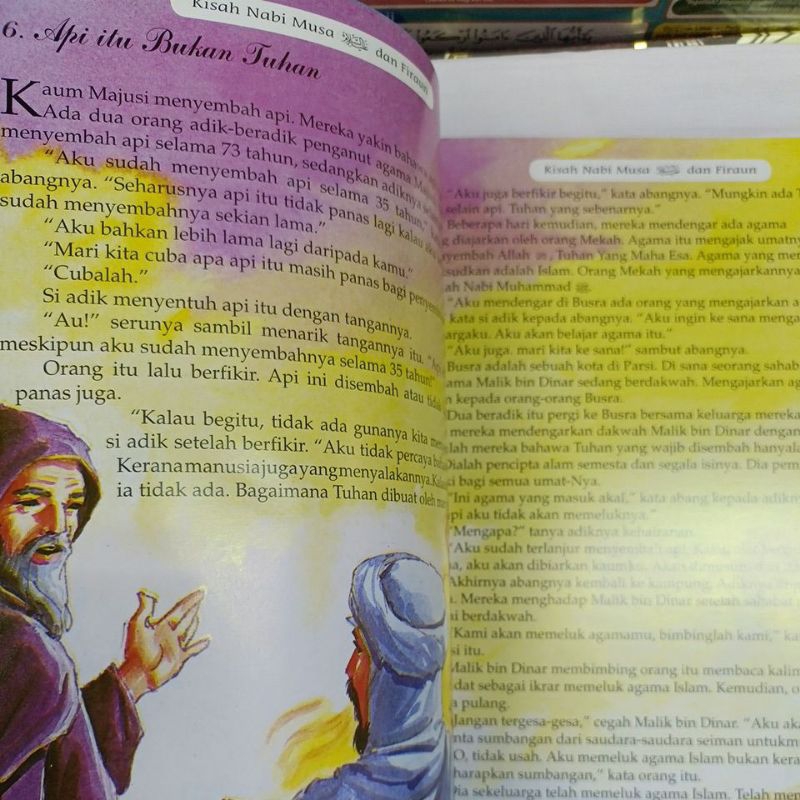 Kisah Nabi Musa dan Firaun
6. Api itu Bukan Tuhan
Kaum Majusi menyembah api. Mereka yakin
Ada dua orang adik-beradik penganut agama
menyembah api selama 73 tahun, sedangkan adiknya
"Aku sudah menyembah api selama 35 tahun,"
abangnya. "Seharusnya api itu tidak panas lagi kalau
sudah menyembahnya sekian lama."
"Aku bahkan lebih lama lagi daripada kamu."
"Mari kita cuba apa api itu masih panas bagi
"Cubalah."
Si adik menyentuh api itu dengan tangannya.
"Au!" serunya sambil menarik tangannya itu.
meskipun aku sudah menyembahnya selama 35 tahun!"
Orang itu lalu berfikir. Api ini disembah atau
panas juga.
"Kalau begitu, tidak ada gunanya kita
si adik setelah berfikir. "Aku tidak percaya
Kerana manusia juga yang menyalakannya.
ia tidak ada. Bagaimana Tuhan dibuat oleh
Kisah Nabi Musa dan Firaun
"Aku juga berfikir begitu," kata abangnya. "Mungkin ada
selain api. Tuhan yang sebenarnya."
Beberapa hari kemudian, mereka mendengar ada agama
diajarkan oleh orang Mekah. Agama itu mengajak
Allah , Tuhan Yang Maha Esa. Agama yang
adalah Islam. Orang Mekah yang mengajarkannya
Nabi Muhammad ﷺ.
"Aku mendengar di Busra ada orang yang mengajarkan
kata si adik kepada abangnya. "Aku ingin ke sana
Aku akan belajar agama itu."
"Aku juga. mari kita ke sana!" sambut abangnya.
Busra adalah sebuah kota di Parsi. Di sana seorang
Malik bin Dinar sedang berdakwah. Mengajarkan
kepada orang-orang Busra.
Dua beradik itu pergi ke Busra bersama keluarga
mereka mendengarkan dakwah Malik bin Dinar
mereka bahawa Tuhan yang wajib disembah
Dialah pencipta alam semesta dan segala isinya. Dia
bagi semua umat-Nya.
"Ini agama yang masuk akal," kata abang kepada
aku tidak akan memeluknya."
"Mengapa?" tanya adiknya kehairanan.
"Aku sudah terlanjur menyembah api.
aku akan dibiarkan kaumku.
Akhirnya abangnya kembali ke kampung.
Mereka menghadap Malik bin Dinar setelah
berdakwah.
"Kami akan memeluk agamamu, bimbinglah kami,"
itu.
Malik bin Dinar membimbing orang itu membaca
sebagai ikrar memeluk agama Islam. Kemudian,
pulang.
"Jangan tergesa-gesa," cegah Malik bin Dinar. "Aku
sumbangan dari saudara-saudara seiman
tidak usah. Aku memeluk agama Islam bukan
sumbangan," kata orang itu.
Dia sekeluarga telah memeluk agama Islam. Telah